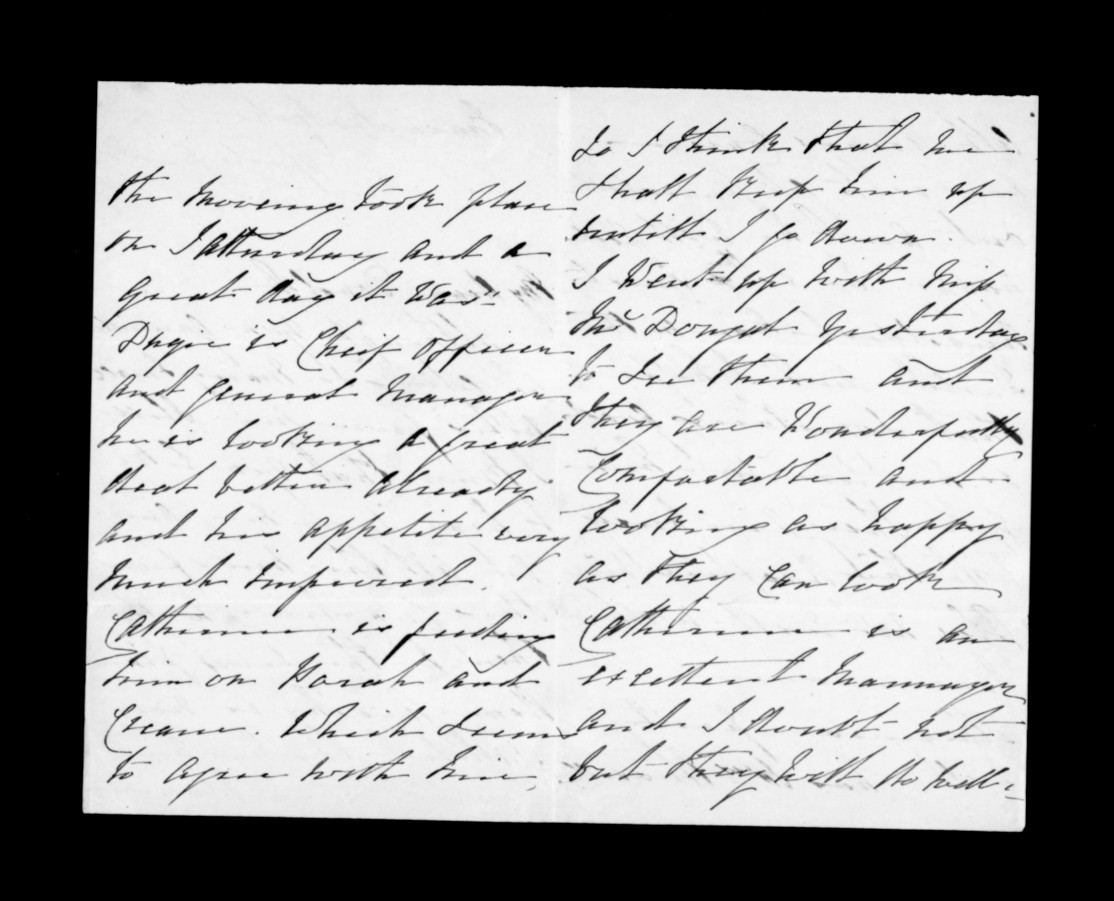 the moving took place
on Satturday and a
great day it was"
is Cheif officer
and general manager
he is looking a great
deal better already
and his appetite very
much improved.
Catherine is feeding
him on and
Cream. Which seems
to agree with him,
so I think that we
shall keep him up
untill I go down.
I Went up with Miss
Mc Dougal yesterday
to see them and
they are Wonderfully
Comfortable and
looking as happy
as they can look
Catherine is an
excellent Mannager
and I doubt not
but they will do well: